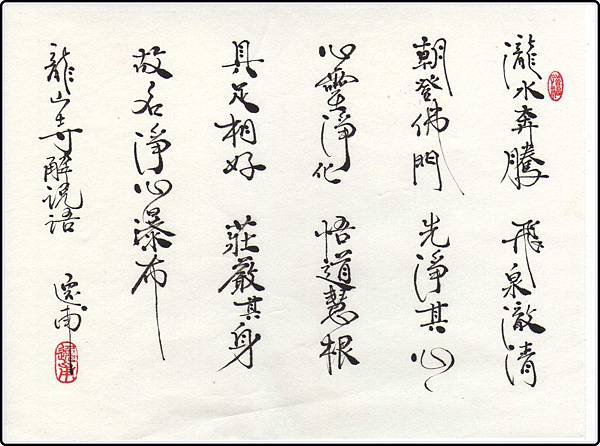 瀧水奔騰 飛泉澈清
朝登佛門 先淨其心
心靈淨化 悟道慧根
具足相好 莊嚴其身
故名淨心瀑布
龍山寺解說語